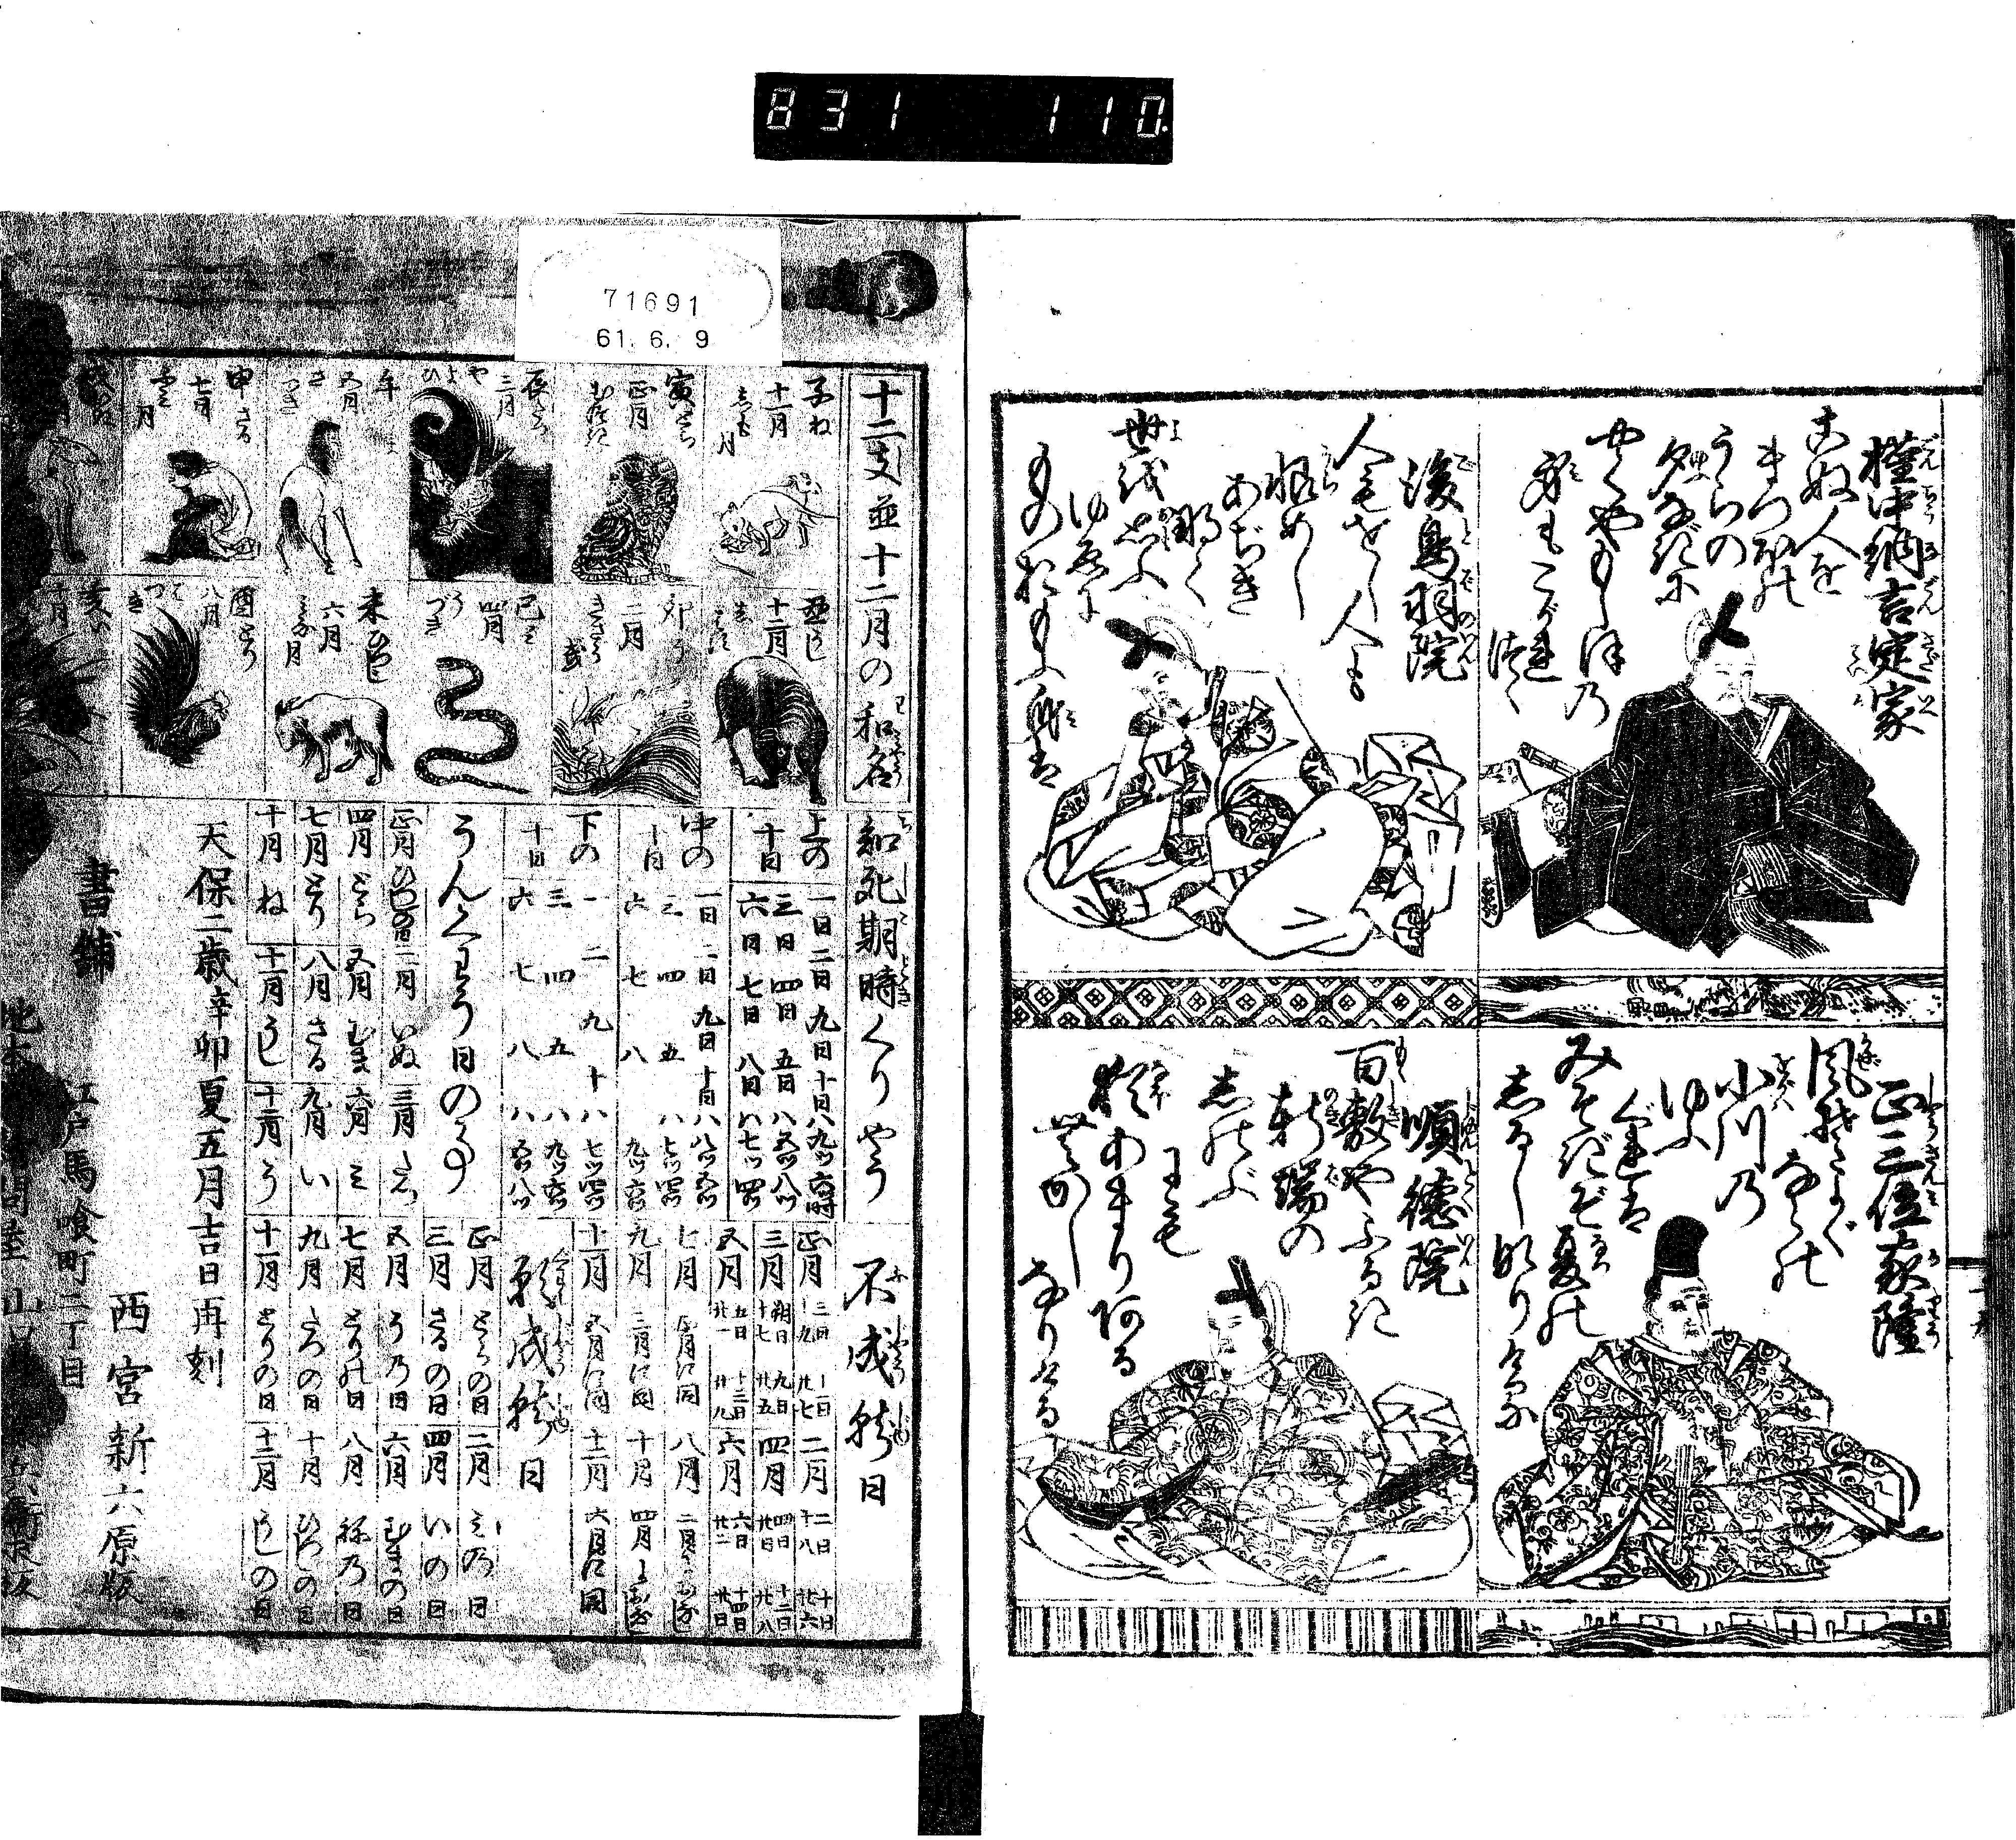 831 110.
権中納言定家
こぬ人を
まつほの
うらの
夕なぎに
やくやもしほの
身もこがれ
つゝ
正三位家隆
風そよぐ
ならの
小川の
ゆふ
ぐれは
みそぎぞ夏の
しるしなりける
後鳥羽院
人もをし人も
恨めし
あぢき
なく
世を思ふ
ゆゑに
ものおもふ身は
順徳院
百敷やふるき
軒端の
しのぶ
にも
猶あまりある
昔
なりけり
71691
61. 6. 9
十二支並十二月の和名
子ね
十一月
しも月
丑うし
十二月
寅とら
正月
むつき
卯う
二月
きさらぎ
辰たつ
三月
やよひ
巳み
四月
うづき
午
五月
さつき
未ひつじ
六月
みな月
申さる
七月
ふみ月
酉とり
八月
はつき
亥い
十月
知死期時くりやう
上の
十日
一日二日九日十日
三日四日五日
六日七日八日
中の
十日
一日二日九日十日
三四五
六七八
下の
十日
一二九十
三四五
六七八
うんくわう日の事
正月 ひつじの日 二月 いぬ 三月 たつ
四月 とら 五月 むま 六月 み
七月 とり 八月 さる 九月 い
十月 ね 十一月 うし 十二月 う
不成就日
正月 三日 十一日 十九 廿七 二月 二日 十日 十八 廿六
三月 朔日 九日 十七 廿五 四月 四日 十二日 廿日 廿八
五月 五日 十三日 廿一 廿九 六月 六日 十四日 廿二 卅日
七月 正月に同 八月 二月におなじ
九月 三月に同 十月 四月におなじ
十一月 五月に同 十二月 六月に同
願成就日
正月 とらの日 二月 みの日
三月 さるの日 四月 いの日
五月 うの日 六月 むまの日
七月 とりの日 八月 ねの日
九月 たつの日 十月 ひつじの日
十一月 とりの日 十二月 うしの日
天保二歳辛卯夏五月吉日再刻
書舗
西宮新六原版
江戸馬喰町二丁目